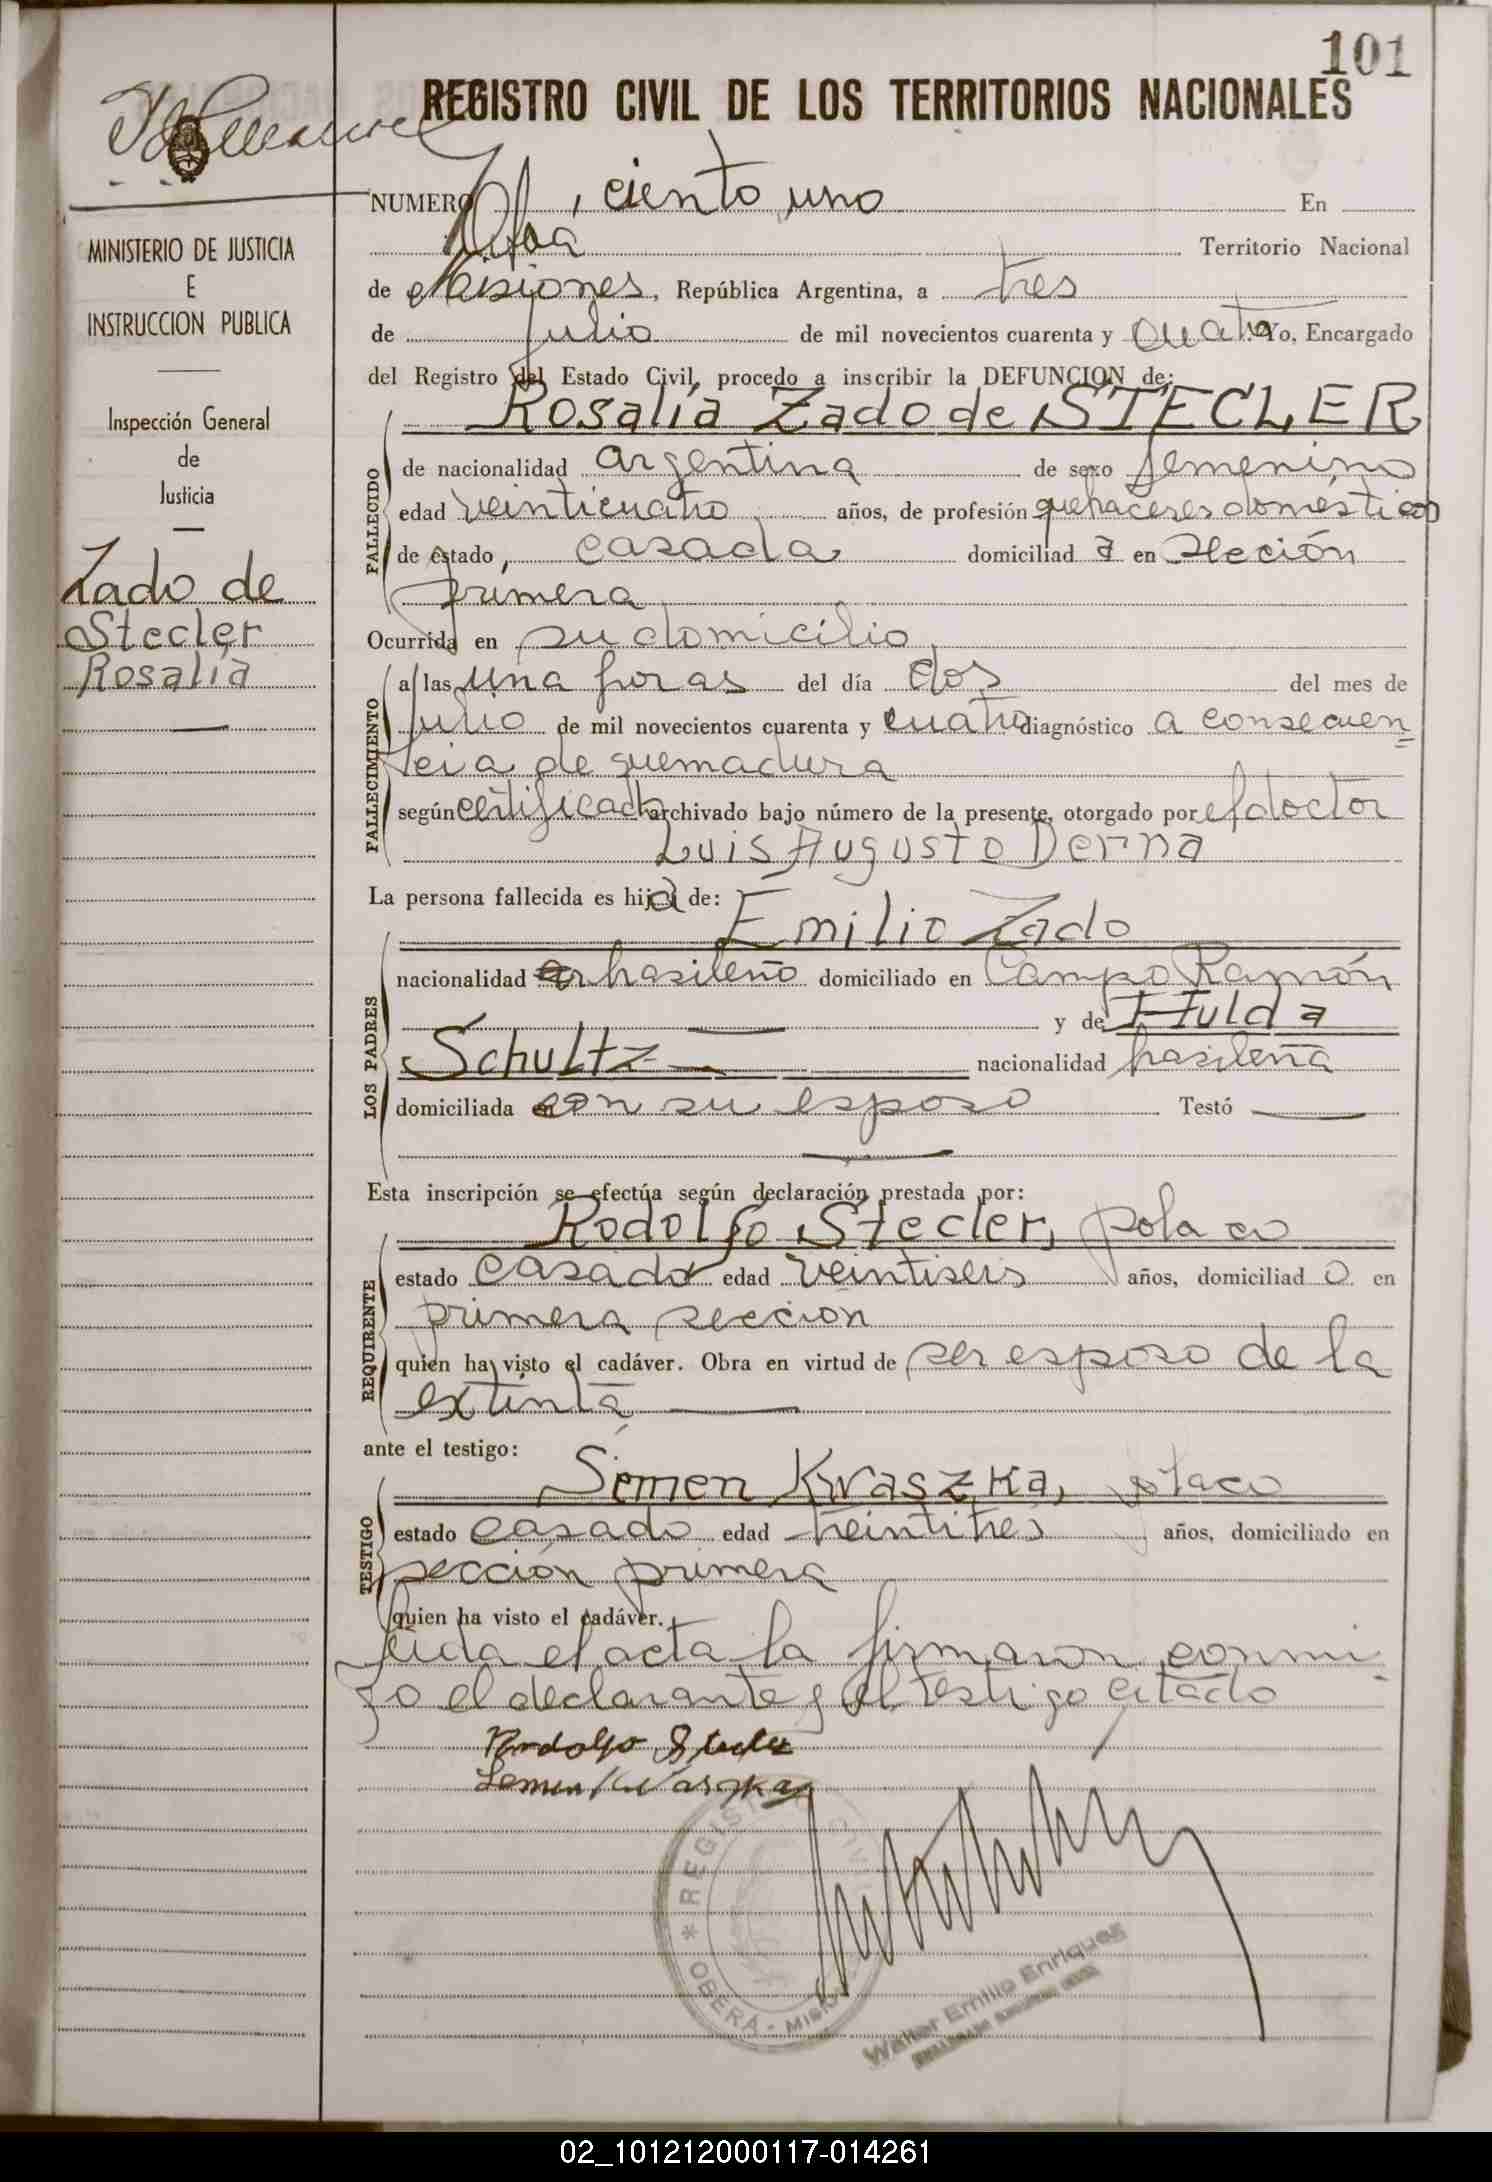 101
REGISTRO CIVIL DE LOS TERRITORIOS NACIONALES
NUMERO 101, ciento uno En
Territorio Nacional
de Misiones, República Argentina, a tres
de julio de mil novecientos cuarenta y cuatro Yo, Encargado
del Registro del Estado Civil, procedo a inscribir la DEFUNCION de:
Rosalía Zado de STECLER
FALLECIDO
de nacionalidad argentina de sexo femenino
edad veinticuatro años, de profesión quehaceres domésticos
de estado, casada domiciliad a en sección
primera
Ocurrida en su domicilio
FALLECIMIENTO
a las una horas del día dos del mes de
julio de mil novecientos cuarenta y cuatro diagnóstico a consecuen
cia de quemadura
según certificado archivado bajo número de la presente, otorgado por el doctor
Luis Augusto Derna
La persona fallecida es hija de:
Emilio Zado
LOS PADRES
nacionalidad brasileño domiciliado en Campo Ramón
y de Hulda
Schultz nacionalidad brasileña
domiciliada con su esposo Testó
Esta inscripción se efectúa según declaración prestada por:
Rodolfo Stecler, polaco
REQUIRENTE
estado casado edad veintiseis años, domiciliad o en
primera sección
quien ha visto el cadáver. Obra en virtud de ser esposo de la
extinta
ante el testigo:
Semen Kwaszka, polaco
TESTIGO
estado casado edad treintitres años, domiciliado en
sección primera
quien ha visto el cadáver.
Leída el acta la firmaron conmi-
go el declarante y el testigo citado
Rodolfo Stecler
Semen Kwaszka
REGISTRO CIVIL
OBERÁ - MISIONES
Walter Emilio Enriques
MINISTERIO DE JUSTICIA
E
INSTRUCCION PUBLICA
Inspección General
de
Justicia
Zado de
Stecler
Rosalía
02_101212000117-014261